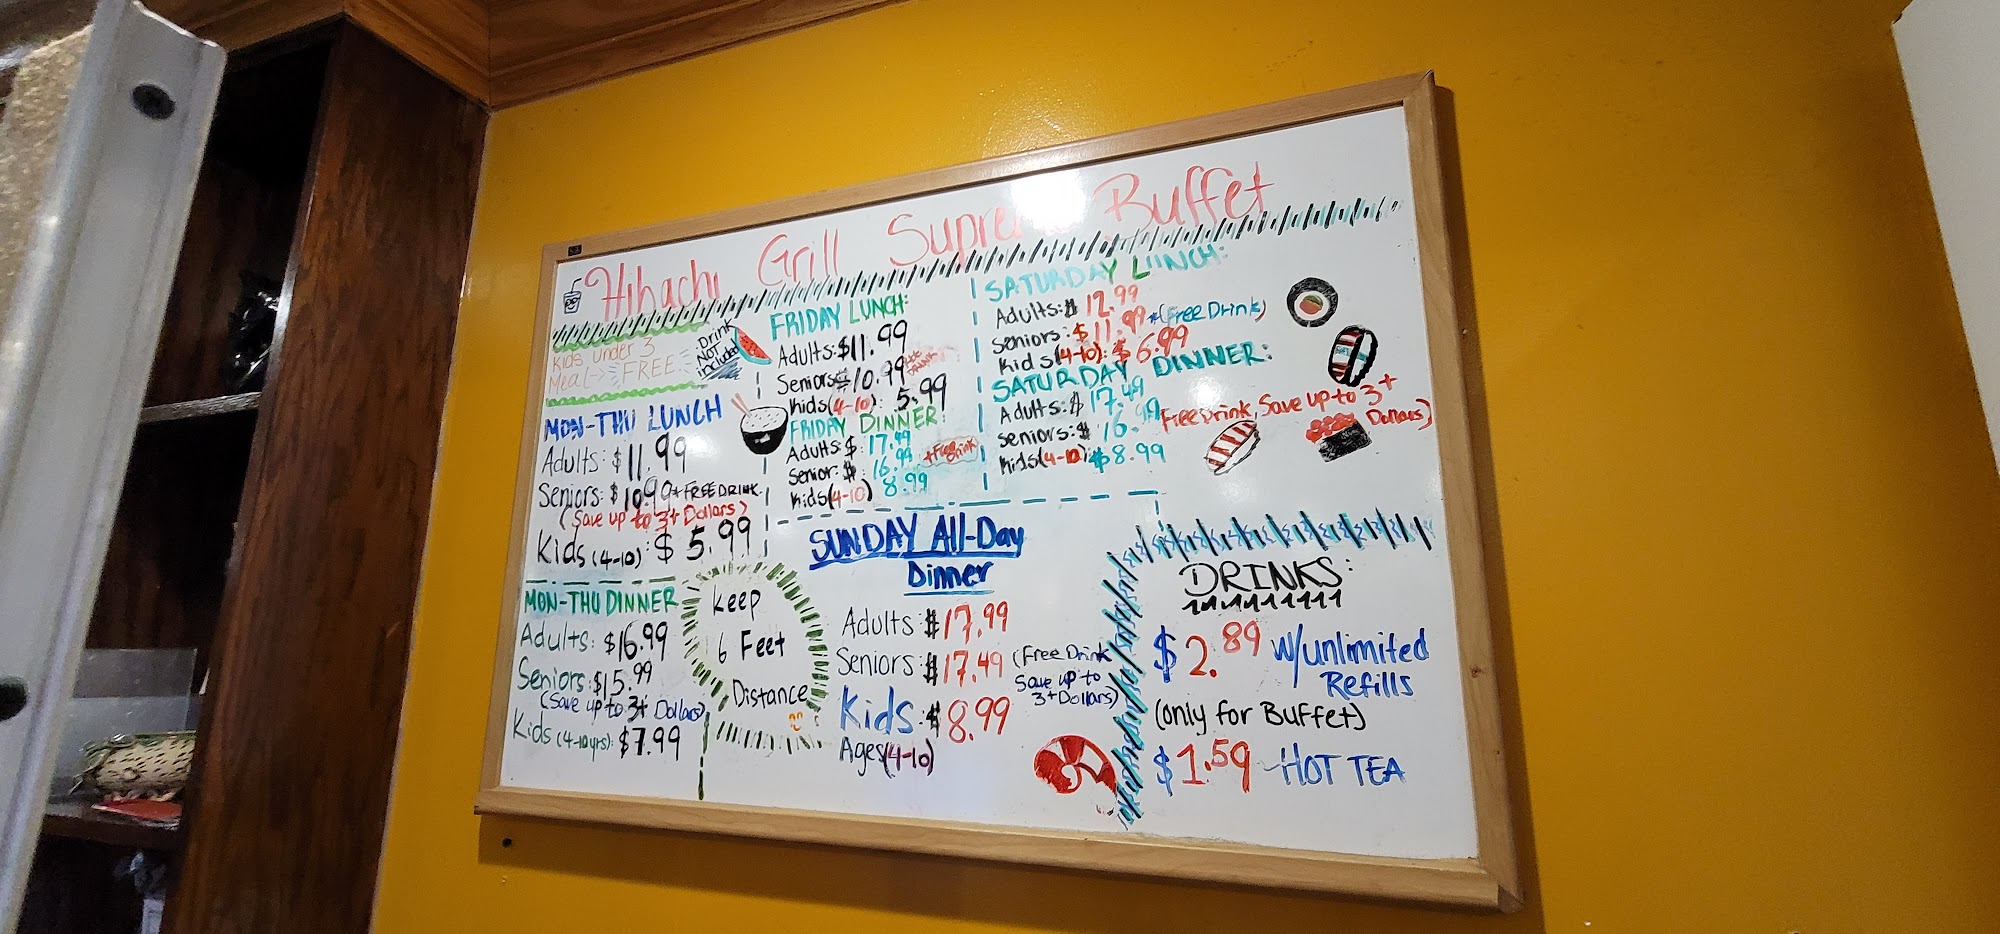 Hibachi Grill Supreme Buffet
Kids under 3
Meal → FREE
Drink
Not
included
MON-THU LUNCH
Adults: $11.99
Seniors: $10.99 + FREE DRINK
(Save up to 3+ Dollars)
Kids (4-10): $5.99
MON-THU DINNER
Adults: $16.99
Seniors: $15.99
(Save up to 3+ Dollars)
Kids (4-10yrs): $7.99
FRIDAY LUNCH:
Adults: $11.99
Seniors $10.99
Kids (4-10): 5.99
FRIDAY DINNER:
Adults $ 17.49
Senior: $ 16.99
+Free Drink
Kids (4-10) 8.99
SATURDAY LUNCH:
Adults: $ 12.99
Seniors: $11.99 + (Free Drink)
Kids (4-10): $6.99
SATURDAY DINNER:
Adults: $ 17.49
Seniors: $
Free Drink, Save up to 3+
Dollars)
Kids (4-10) $8.99
Keep
6 Feet
Distance
SUNDAY All-Day
Dinner
Adults $17.99
Seniors $17.49 (Free Drink
Save up to
3+ Dollars)
Kids: $8.99
Ages (4-10)
DRINKS:
$2.89 w/unlimited
Refills
(only for Buffet)
$1.59 -HOT TEA